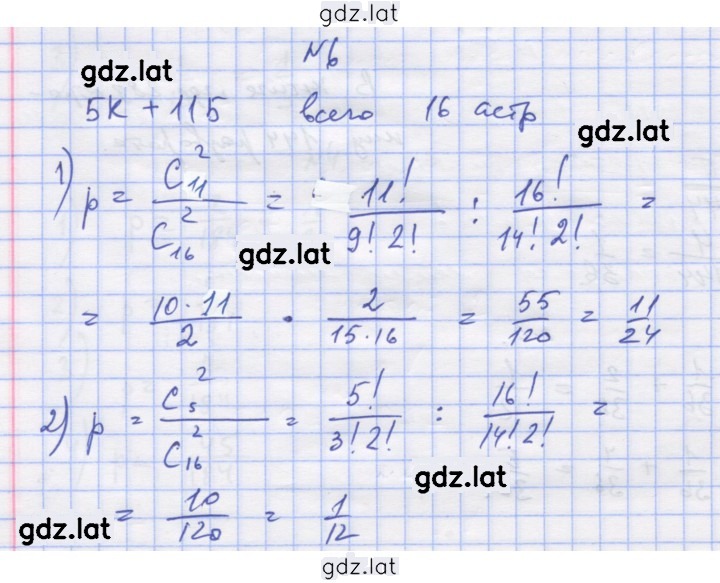 gdz.lat
№6
gdz.lat
5К + 11Б всего 16 астр
gdz.lat
1) p = C₁₁² / C₁₆² = 11! / 9! 2! : 16! / 14! 2! =
gdz.lat
= 10 · 11 / 2 · 2 / 15 · 16 = 55 / 120 = 11 / 24
2) p = C₅² / C₁₆² = 5! / 3! 2! : 16! / 14! 2! =
gdz.lat
= 10 / 120 = 1 / 12
gdz.lat
gdz.lat